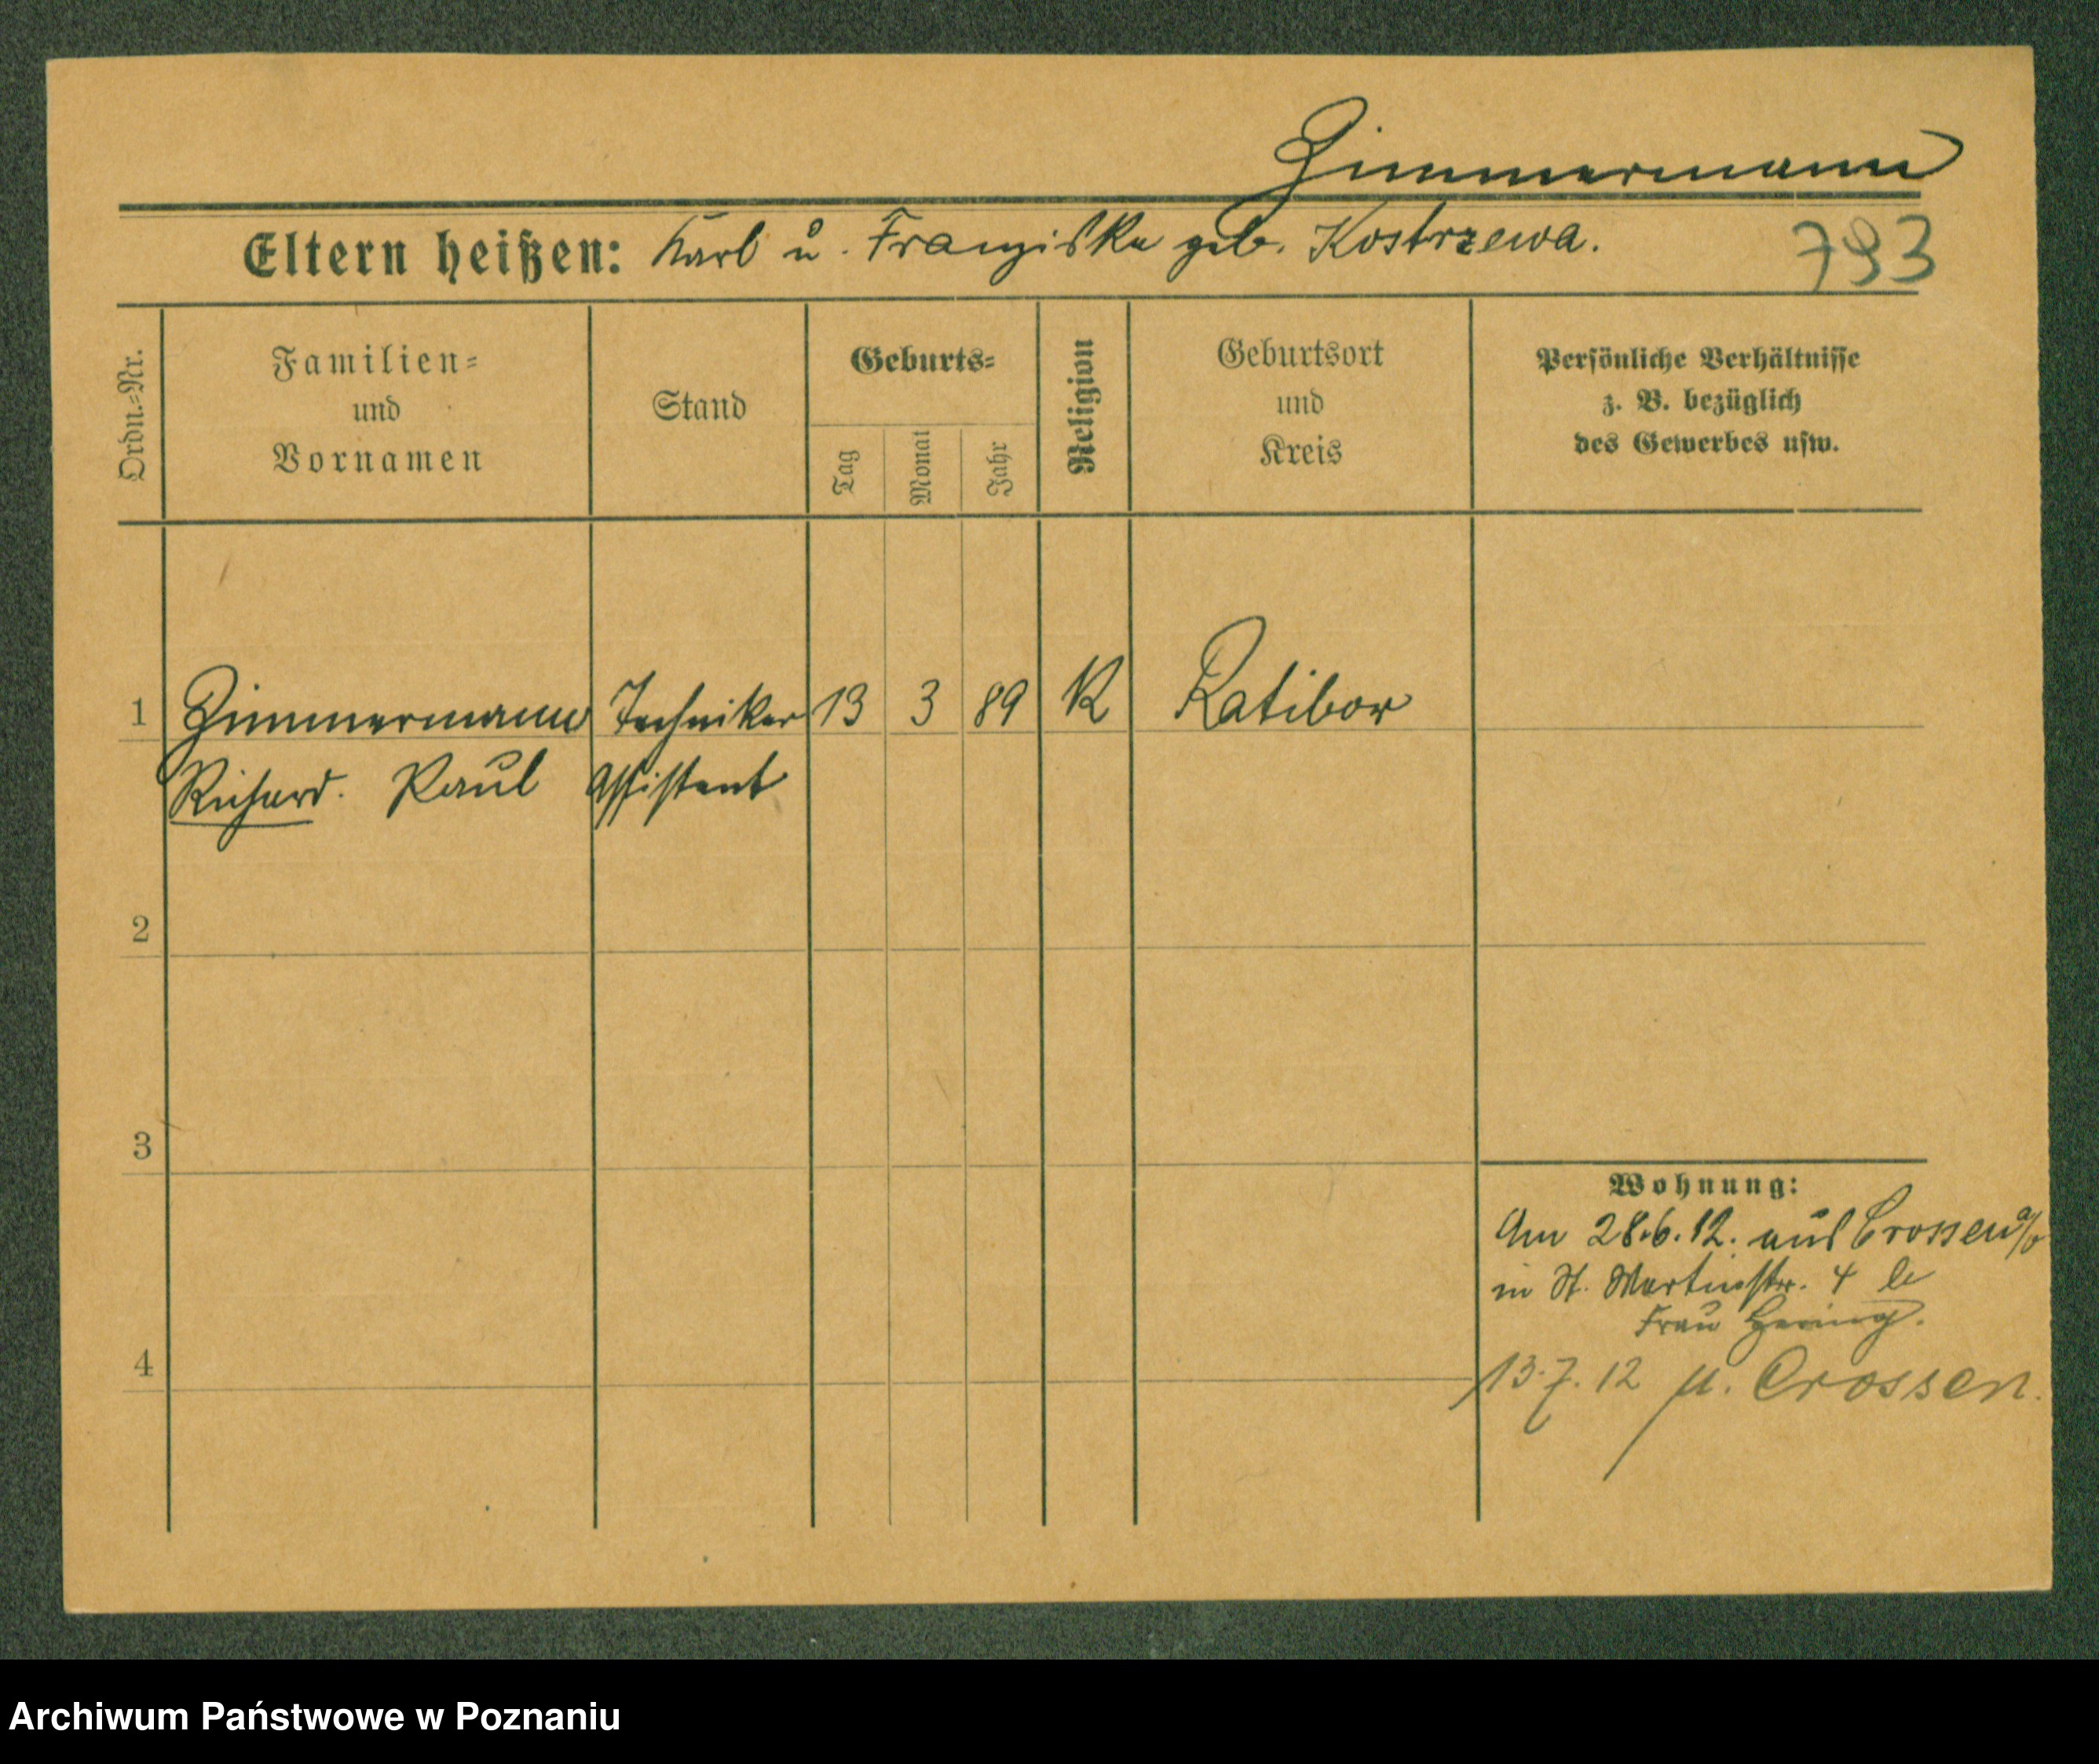 Zimmermann
Eltern heißen: Karl u. Franziska geb. Kostrzewa.
793
Ordn.-Nr.
Familien-
und
Vornamen
Stand
Geburts-
Tag
Monat
Jahr
Religion
Geburtsort
und
Kreis
Persönliche Verhältnisse
z. B. bezüglich
des Gewerbes usw.
1 Zimmermann Techniker 13 3 89 K Ratibor
Richard. Paul Assistent
2
3
4
Wohnung:
Am 28.6.12. aus Crossen a/o
in St. Martinstr. 4 be
Frau Hering.
13.7.12 n. Crossen.
Archiwum Państwowe w Poznaniu